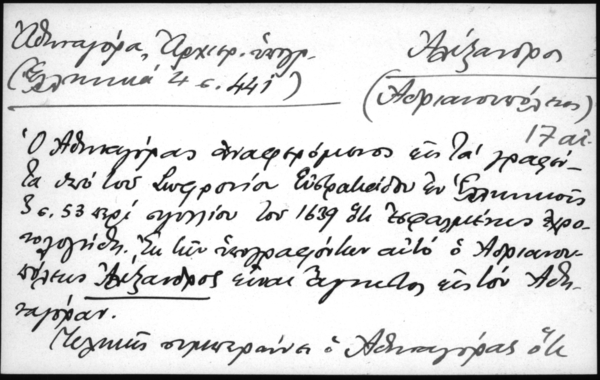 Ἀθηναγόρα, Ἀρχιερ. ὑπογρ.
(Ἑλληνικά 4 σ. 441)
Ἀλέξανδρος
(Ἀδριανουπόλεως)
17 αἰ.
Ὁ Ἀθηναγόρας ἀναφερόμενος εἰς τά γραφέν-
τα ὑπό τοῦ Σωφρονίου Εὐστρατιάδου ἐν Ἑλληνικοῖς
3 σ. 53 περί σιγιλλίου τοῦ 1639 ὅτι ἐσφαλμένως ἐχρο-
νολογήθη. Ἐκ τῶν ὑπογραφόντων αὐτό ὁ Ἀδριανου-
πόλεως Ἀλέξανδρος εἶναι ἄγνωστος εἰς τόν Ἀθη-
ναγόραν.
Τελικῶς συμπεραίνει ὁ Ἀθηναγόρας ὅτι